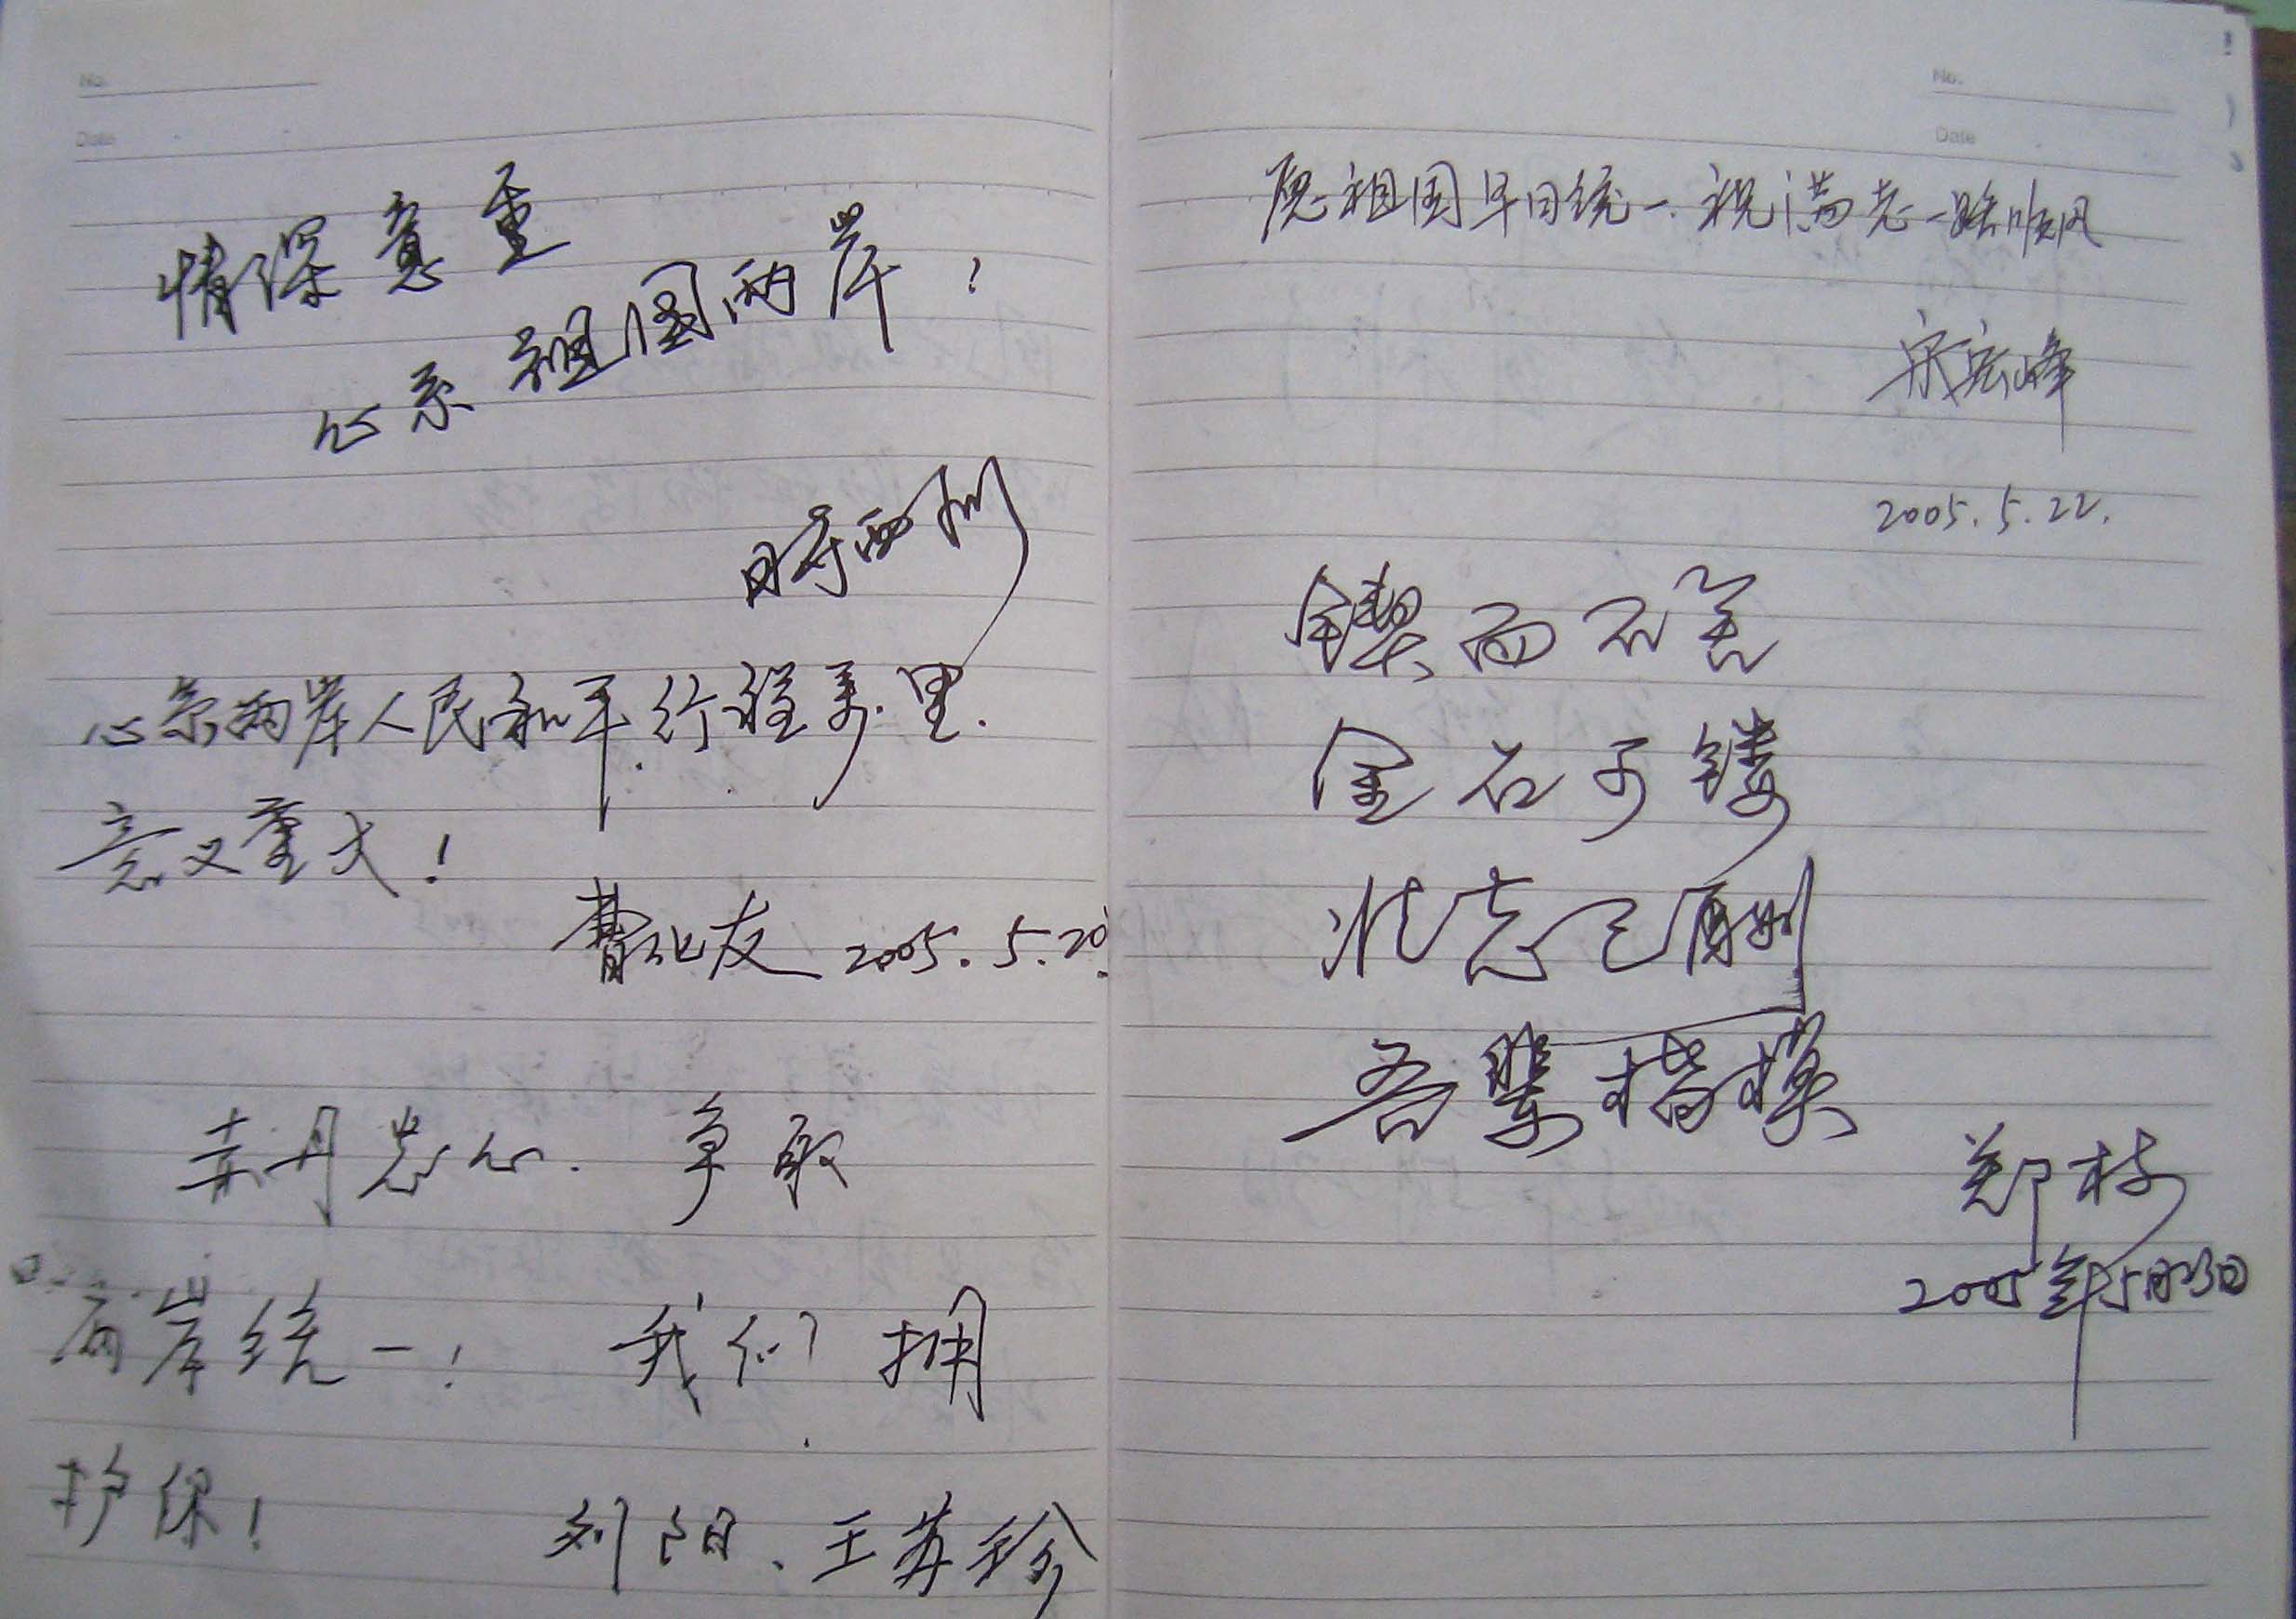 No.
Date
情深意重
心系祖国两岸！
时西刚
心系两岸人民和平.行程万里.
意义重大！
曹化友 2005.5.20
赤丹忠心. 争取
两岸统一！ 我们拥
护你！
刘阳、王苏珍
No.
Date
愿祖国早日统一.祝满志一路顺风
宋宏峰
2005.5.22.
锲而不舍
金石可镂
壮志已酬
吾辈楷模
郑林
2005年5月23日